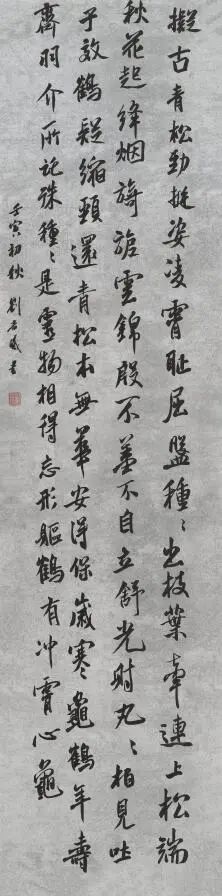 擬古青松勁挺姿凌霄耻屈盤種〻出枝葉牽連上松端
秋花起絳烟旖旎雲錦殷不羞不自立舒光射丸〻柏見吐
子效鶴疑縮頸還青松本無華安得保歲寒龜鶴年壽
齊羽介所託殊種〻是靈物相得忘形軀鶴有冲霄心龜
壬寅初秋 劉 書